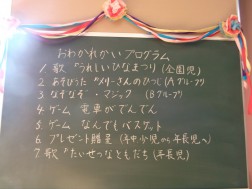 おわかれかいプログラム
1. 歌 『うれしいひなまつり』(全園児)
2. あそびうた 『メリーさんのひつじ』(Aグループ)
3. なぞなぞ・マジック (Bグループ)
4. ゲーム 電車がでんでん
5. ゲーム なんでもバスケット
6. プレゼント贈呈 (年中少児から年長児へ)
7. 歌 『たいせつなともだち』(年長児)